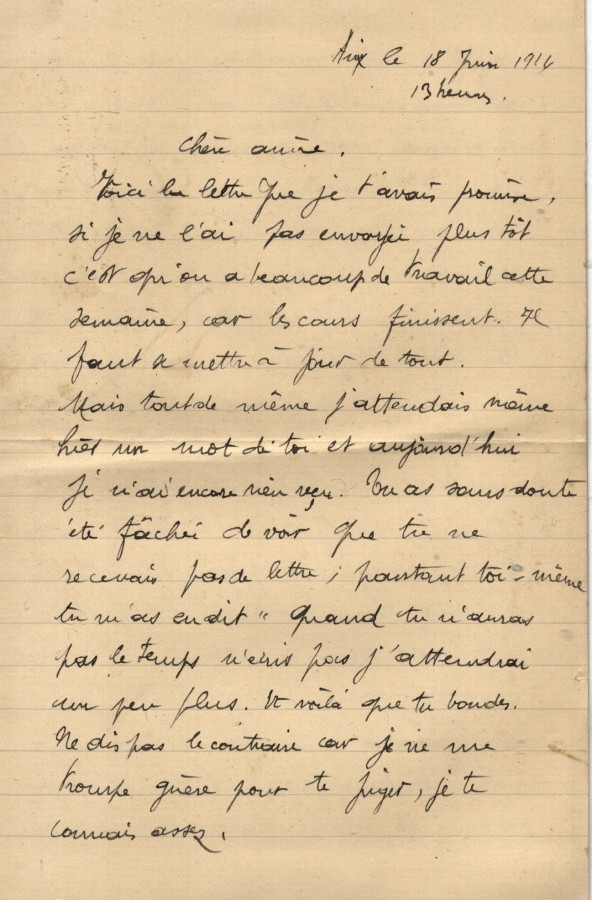 Aix le 18 Juin 1914
13 heures.
Chère amie.
Voici la lettre que je t'avais promise,
si je ne l'ai pas envoyée plus tôt
c'est qu'on a beaucoup de travail cette
semaine, car les cours finissent. Il
faut se mettre à jour de tout.
Mais tout de même j'attendais même
hier un mot de toi et aujourd'hui
je n'ai encore rien reçu. Tu as sans doute
été fâchée de voir que tu ne
recevais pas de lettre ; pourtant toi-même
tu m'as dit " Quand tu n'auras
pas le temps n'écris pas j'attendrai
un peu plus. Et voilà que tu boudes.
Ne dis pas le contraire car je ne me
trompe guère pour te juger, je te
connais assez.